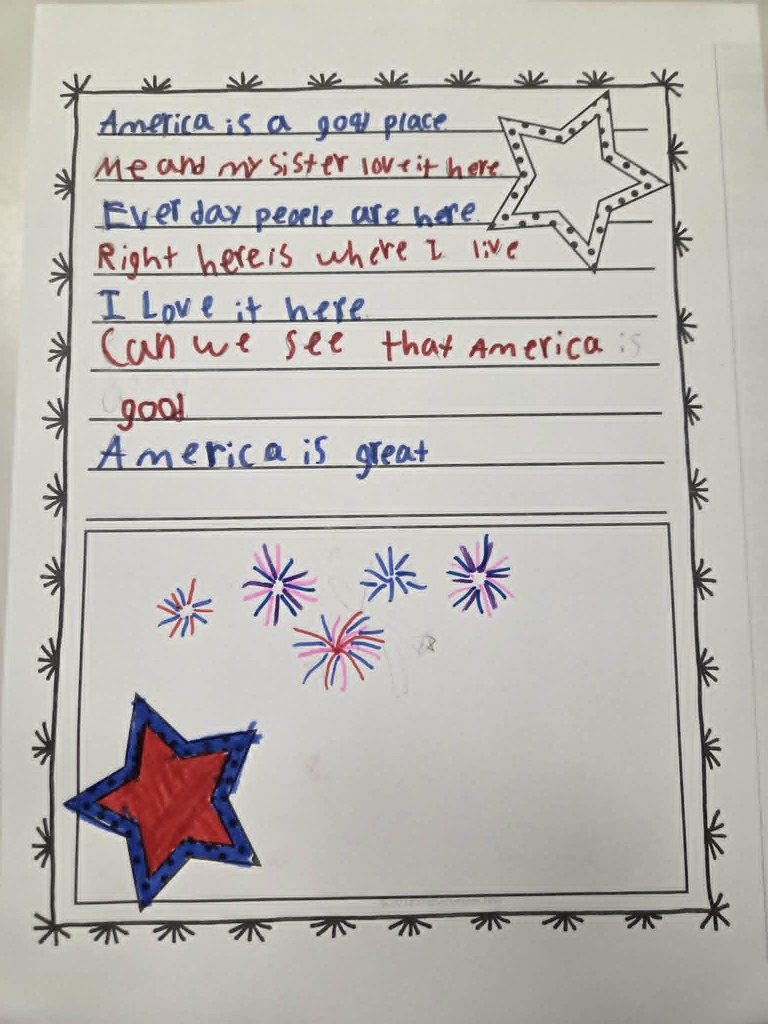 America is a good place
Me and my sister love it here
Ever day people are here
Right here is where I live
I Love it here
Can we see that America is
good
America is great